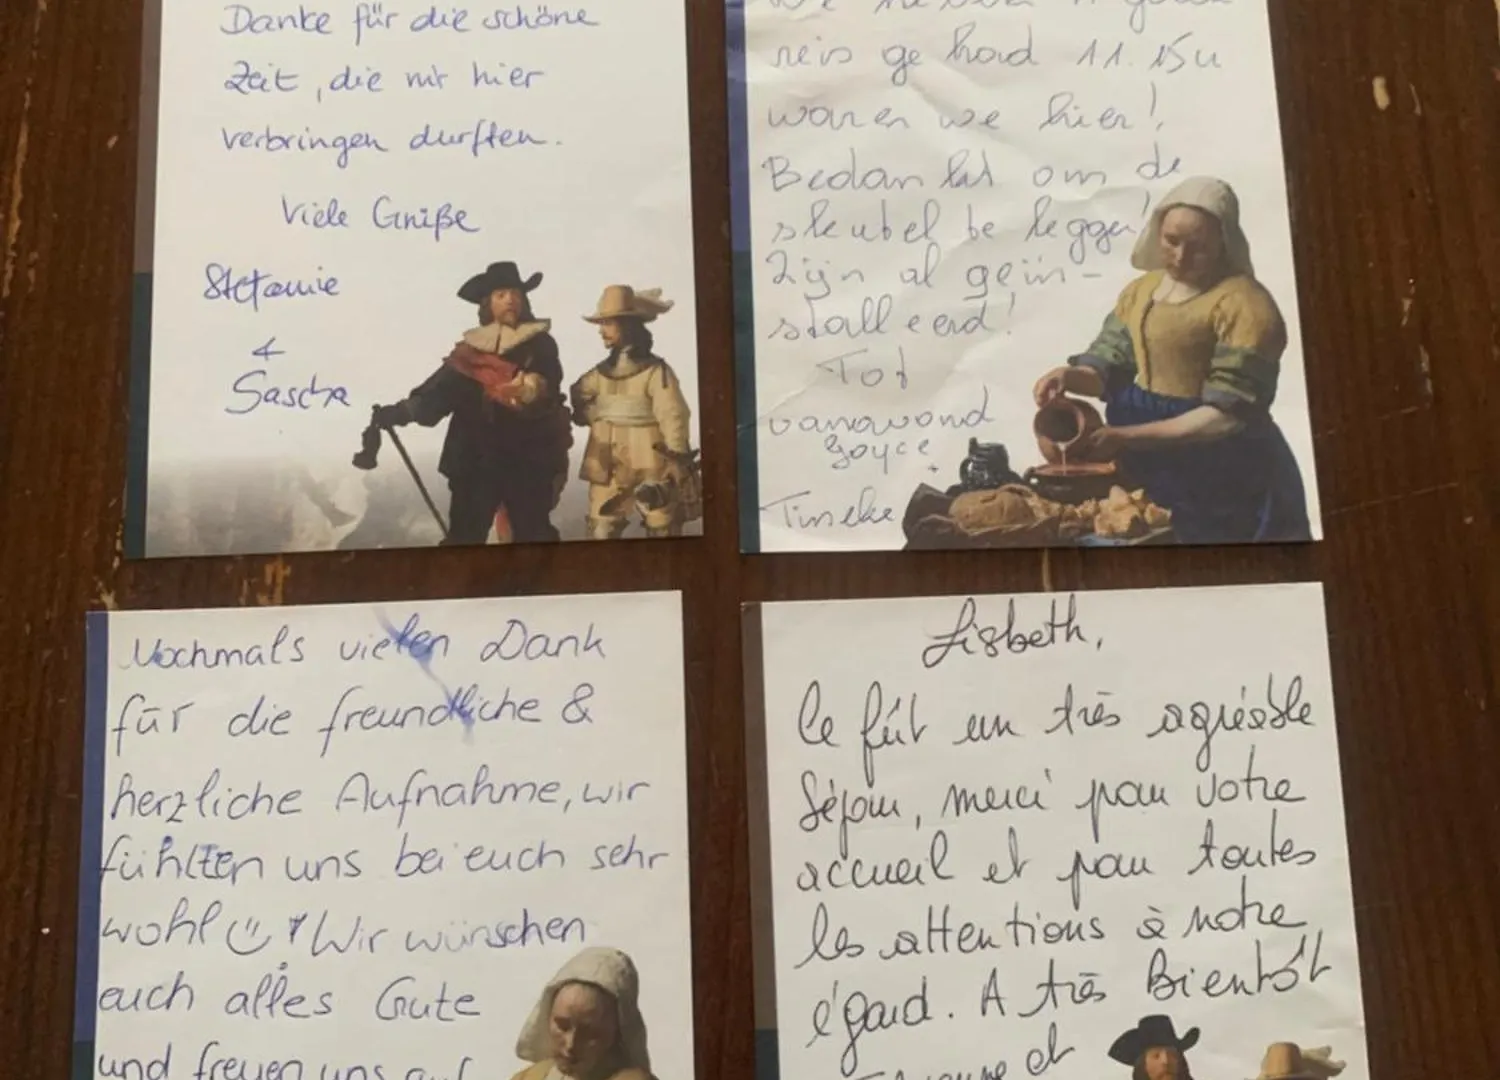 Danke für die schöne
Zeit, die wir hier
verbringen durften.
Viele Grüße
Stefanie
&
Sascha
reis gehad 11.15u
waren we hier!
Bedankt om de
sleutel te leggen!
Zijn al geïn-
stalleerd!
Tot
vanavond
Joyce
+
Tineke
Nochmals vielen Dank
für die freundliche &
herzliche Aufnahme, wir
fühlten uns bei euch sehr
wohl ! Wir wünschen
euch alles Gute
und freuen uns auf
Lisbeth,
Ce fût un très agréable
Séjour, merci pour votre
accueil et pour toutes
les attentions à notre
égard. A très Bientôt
et